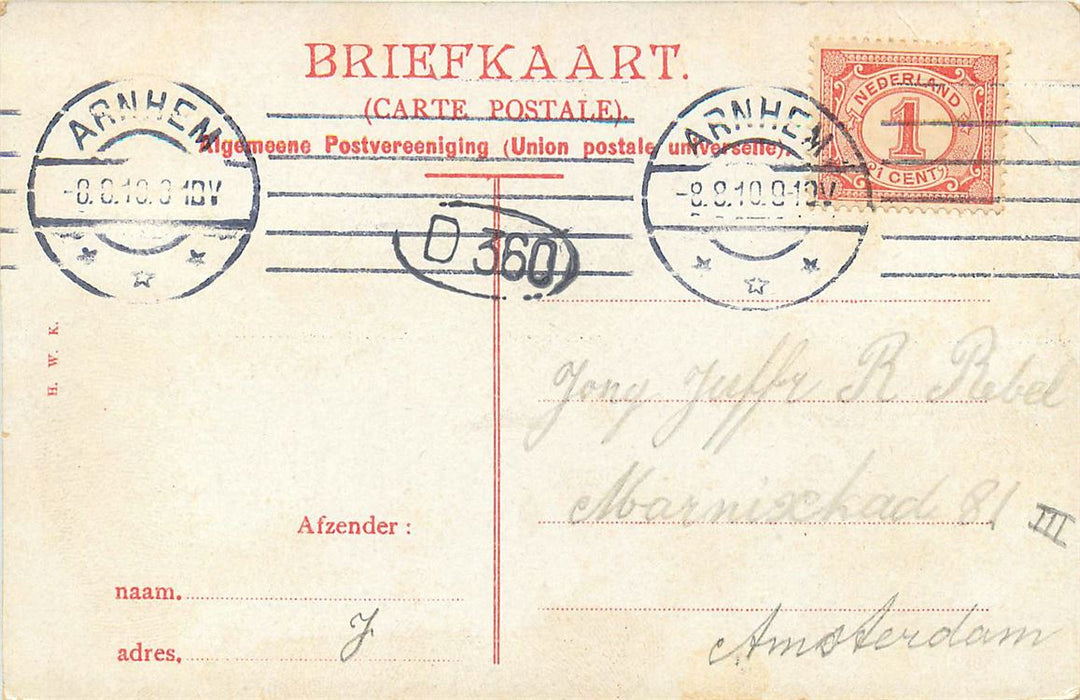 BRIEFKAART.
(CARTE POSTALE).
Algemeene Postvereeniging (Union postale universelle).
NEDERLAND
1
1 CENT
ARNHEM
-8.8.10.8-10V
ARNHEM
-8.8.10.8-10V
D 360
H. W. K.
Jong Juffr R Rebel
Marnixkad 81 III
Amsterdam
Afzender :
naam.
adres. J